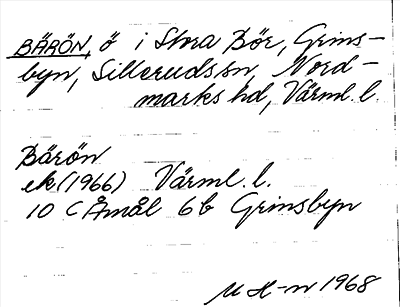 BÄRÖN, ö i Stora Bör, Grims-
byn, Sillerudssn, Nord-
marks hd, Värml. l.
Bärön
ek (1966) Värml. l.
10 C Åmål 6b Grimsbyn
M H-n 1968